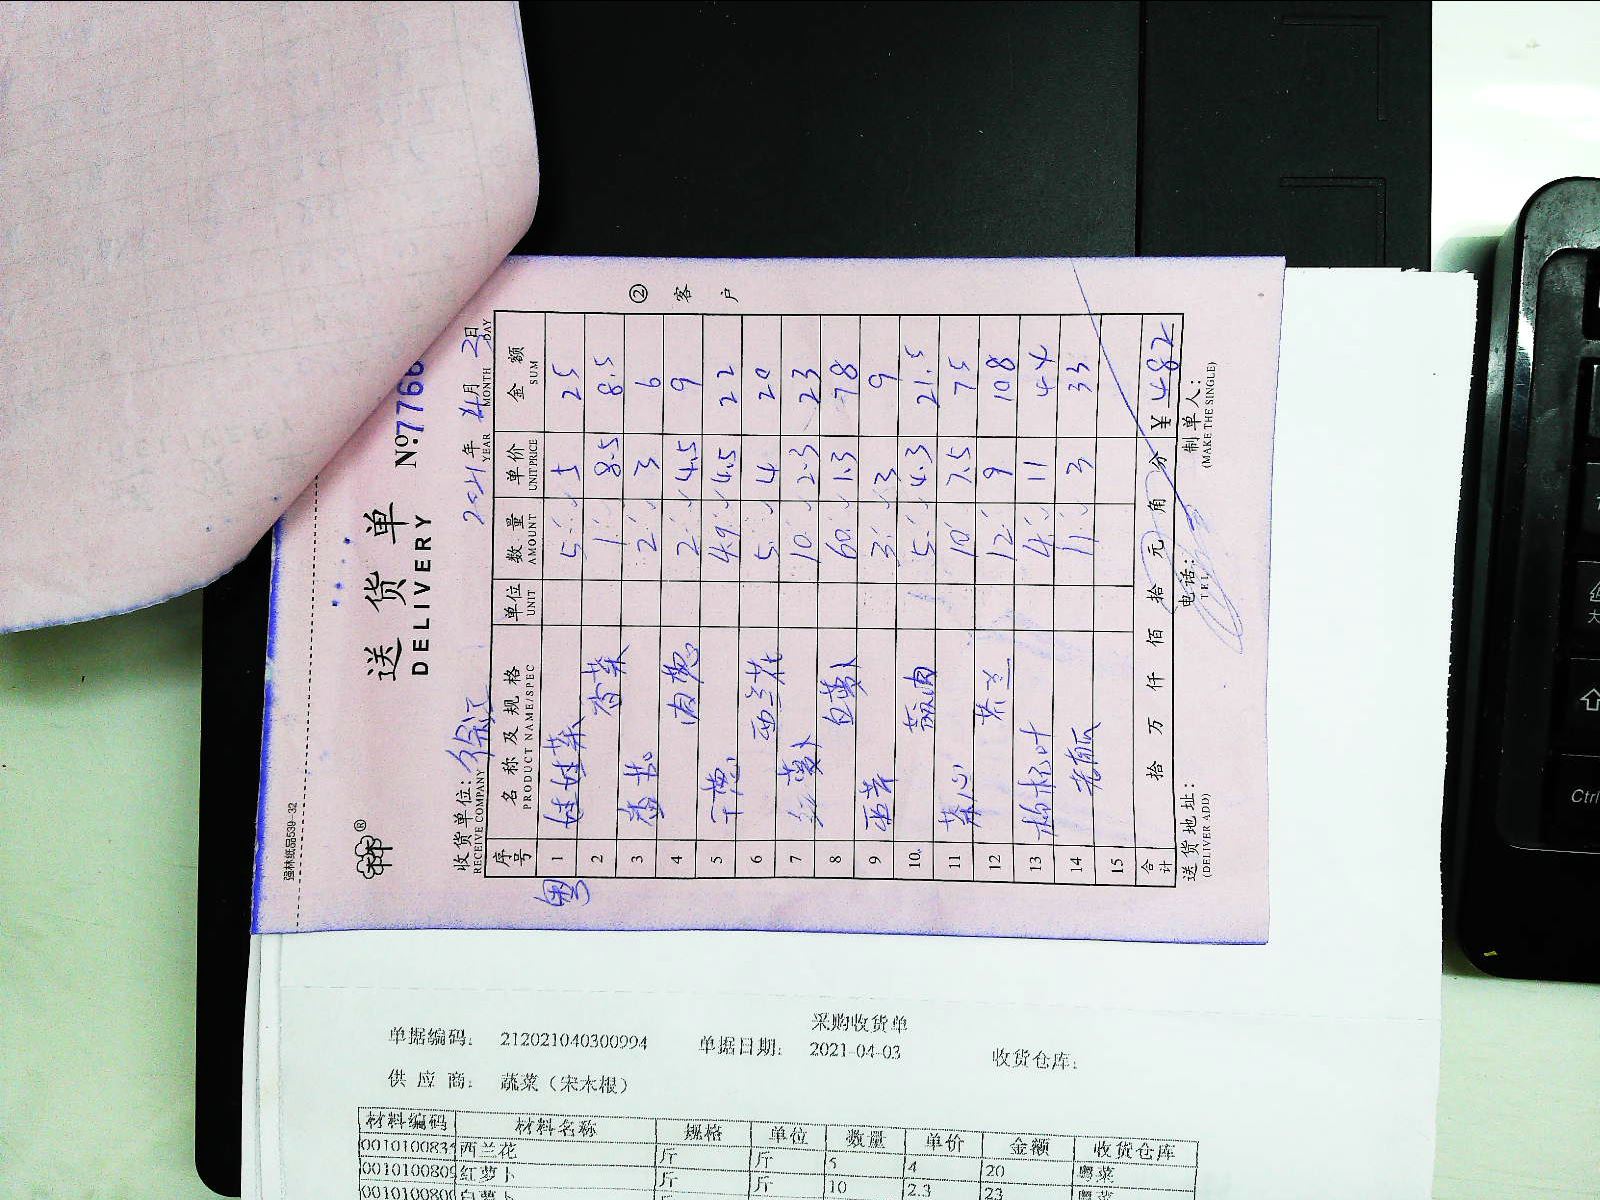 强林纸品539-32
送货单
DELIVERY
№7766
收货单位: 徐汇 2021年 4月 2日
RECEIVE COMPANY YEAR MONTH DAY
序号 名称及规格 单位 数量 单价 金额
PRODUCT NAME/SPEC UNIT AMOUNT UNIT PRICE SUM
粤
1 娃娃菜 5 5 25
2 香菜 1 8.5 8.5
3 2 3 6
4 2 4.5 9
5 4.9 4.5 22
6 西兰花 5 4 20
7 红萝卜 10 2.3 23
8 白萝卜 60 1.3 78
9 3 3 9
10 5 4.3 21.5
11 菜心 10 7.5 75
12 芥兰 12 9 108
13 4 11 44
14 11 3 33
15
合计 拾 万 仟 佰 拾 元 角 分 ¥ 482
送货地址: 电话: 制单人:
(DELIVER ADD) TEL (MAKE THE SINGLE)
② 客户
采购收货单
单据编码: 212021040300994 单据日期: 2021-04-03 收货仓库:
供应商: 蔬菜(宋木根)
材料编码 材料名称 规格 单位 数量 单价 金额 收货仓库
001010083 西兰花 斤 斤 5 4 20 粤菜
001010080 红萝卜 斤 斤 10 2.3 23 粤菜
白萝卜